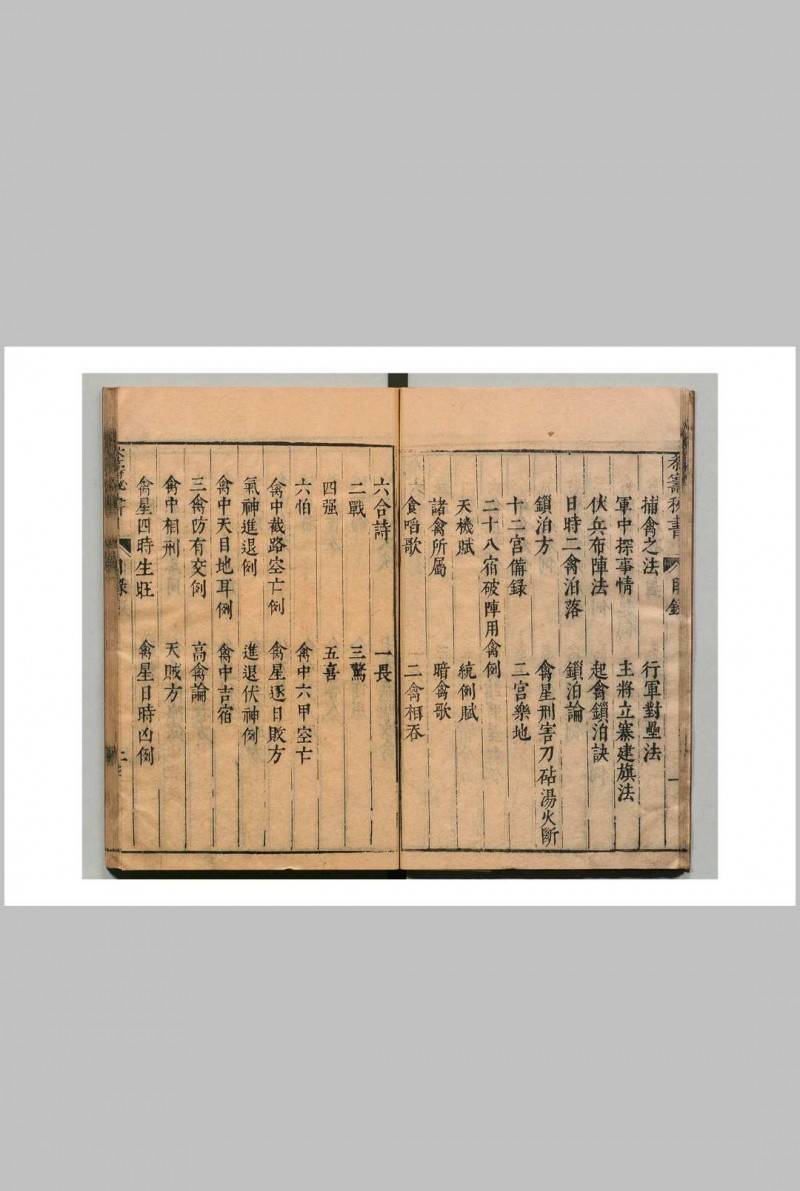 秘書 目錄 一
捕禽之法 行軍對壘法
軍中探事情 主將立寨建旗法
伏兵布陣法 起禽鎖泊訣
日時二禽泊落 鎖泊論
鎖泊方 禽星刑害刀砧湯火斷
十二宮備錄 二宮樂地
二十八宿破陣用禽例
天機賦 統例賦
諸禽所屬 暗禽歌
食啗歌 二禽相吞
六合詩 一長
二戰 三驚
四强 五喜
六怕 禽中六甲空亡
禽中截路空亡例 禽星逐日敗方
氣神進退例 進退伏神例
禽中天目地耳例 禽中吉宿
三禽防有交例 高禽論
禽中相刑 天賊方
禽星四時生旺 禽星日時凶例